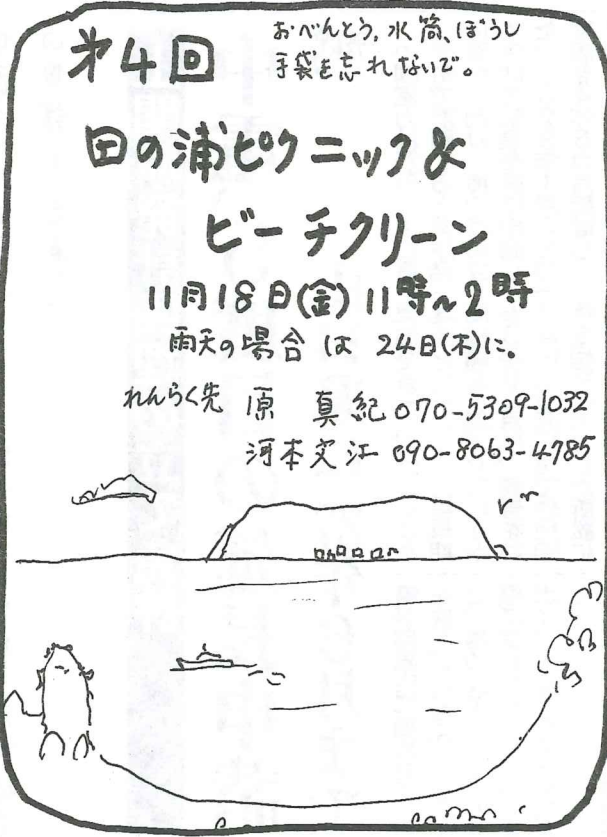 才4回
おべんとう、水筒、ぼうし
手袋を忘れないで。
田の浦ピクニック&
ビーチクリーン
11月18日(金)11時~2時
雨天の場合は 24日(木)に。
れんらく先 原 真紀 070-5309-1032
河本文江 090-8063-4785